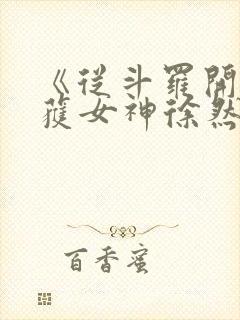 《從斗羅開
獲女神徐然
百香蜜